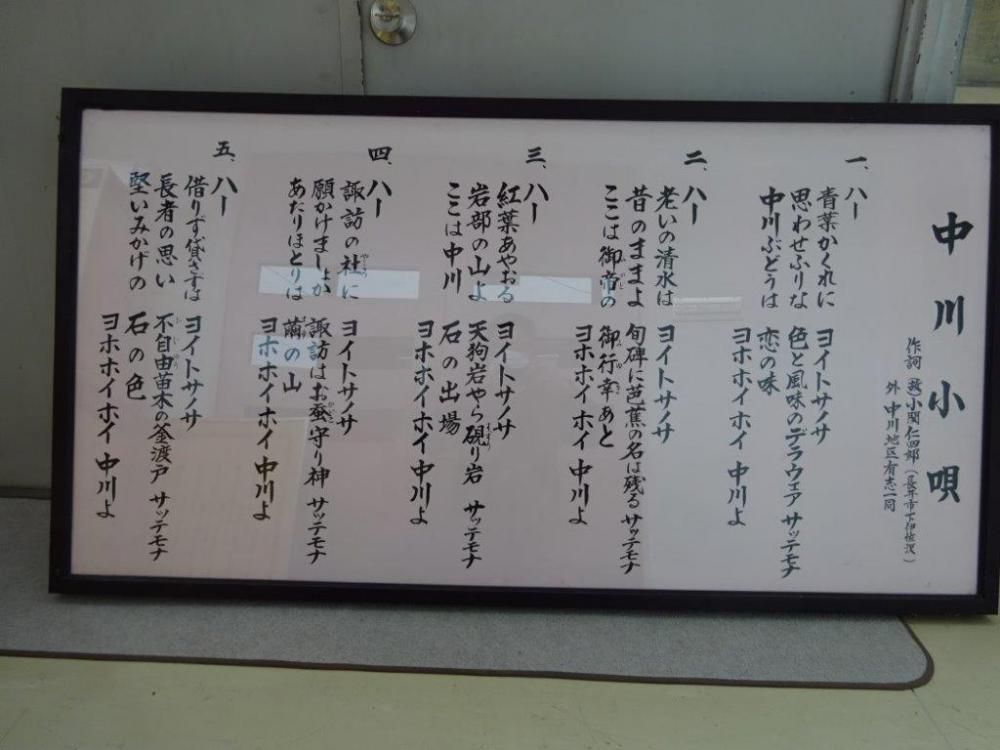 中川小唄
作詞 (故)小関仁四郎(長井市下伊佐沢)
外 中川地区有志一同
一、ハー
青葉かくれに ヨイトサノサ
思わせふりな 色と風味のデラウェア サッテモナ
中川ぶどうは 恋の味
ヨホホイホイ 中川よ
二、ハー
老いの清水は ヨイトサノサ
昔のままよ 句碑に芭蕉の名は残る サッテモナ
ここは御帝の 御行幸あと
ヨホホイホイ 中川よ
三、ハー
紅葉あやおる ヨイトサノサ
岩部の山よ 天狗岩やら硯り岩 サッテモナ
ここは中川 石の出場
ヨホホイホイ 中川よ
四、ハー
諏訪の社に ヨイトサノサ
願かけましょか 諏訪はお蚕守り神 サッテモナ
あたりほとりは 繭の山
ヨホホイホイ 中川よ
五、ハー
借りず貸さずは ヨイトサノサ
長者の思い 不自由苗木の釜渡戸 サッテモナ
堅いみかげの 石の色
ヨホホイホイ 中川よ